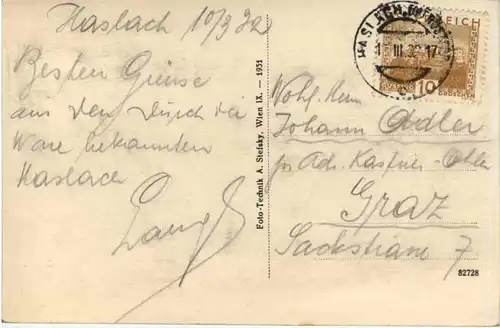 Haslach 10/3 32
Besten Grüsse
aus den durch die
Ware bekannten
Haslach
Foto-Technik A. Stefsky, Wien IX. — 1931
HASLACH
III 32 17
REICH
10
GROSCHEN GROSCHEN
Wohl. Herrn
Johann Adler
Graz
Sackstrasse 7
82728